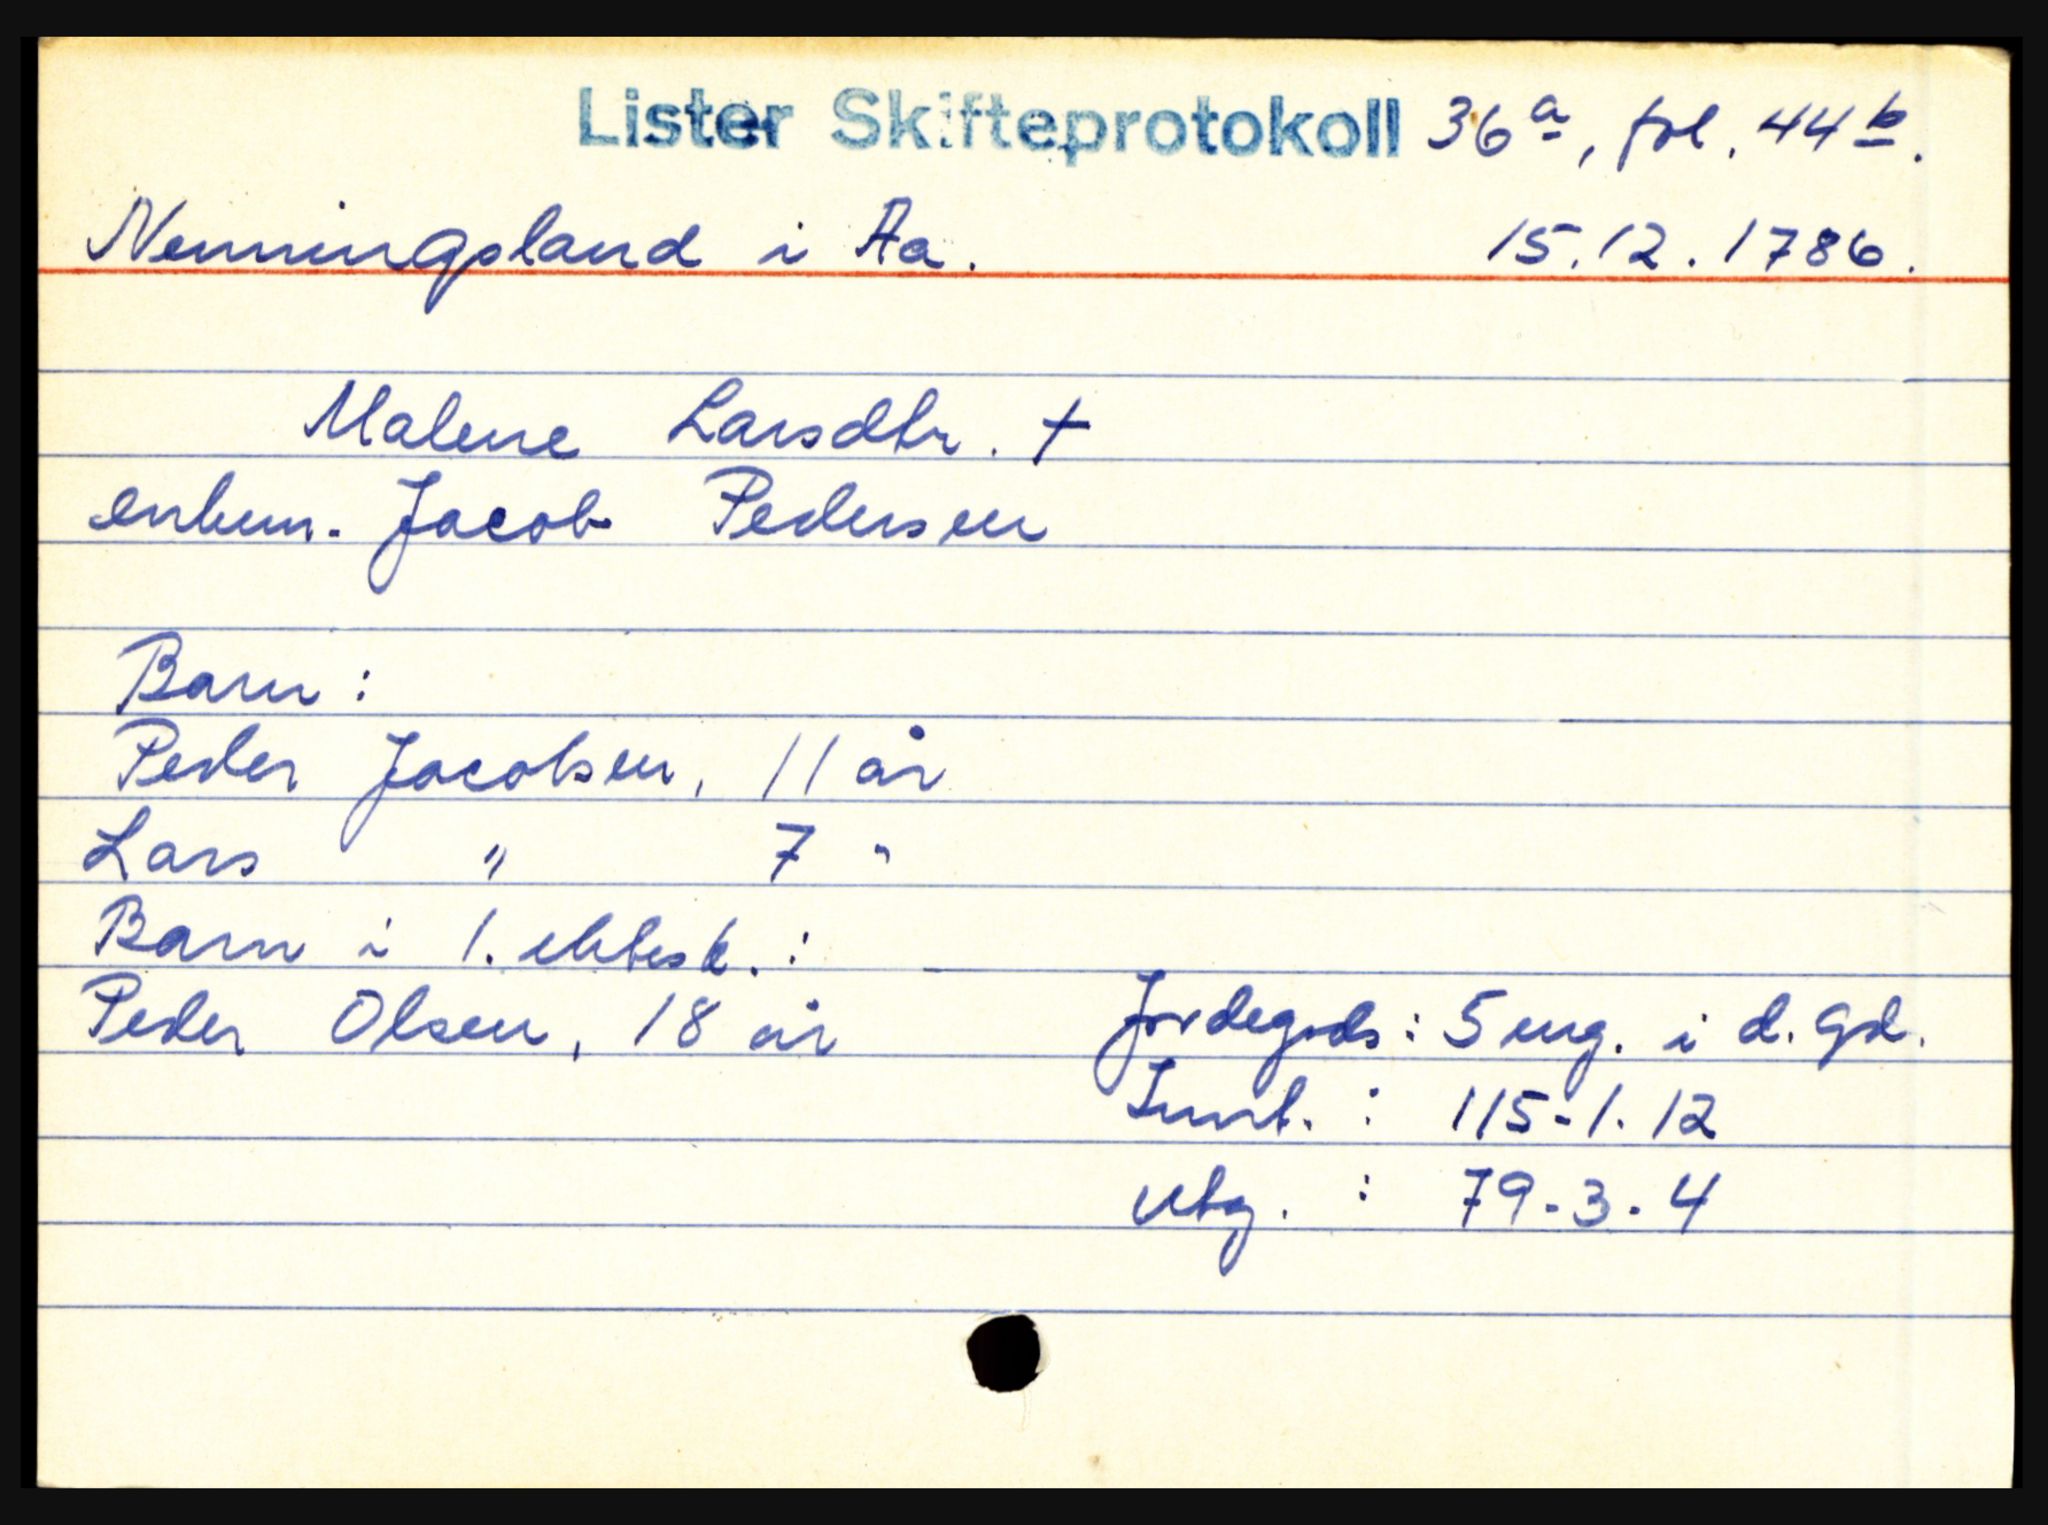 Lister Skifteprotokoll 36a, fol. 44b.
Nenningsland i Aa. 15.12.1786.
Malene Larsdtr. †
enkem. Jacob Pedersen
Barn:
Peder Jacobsen, 11 år
Lars " 7 "
Barn i 1. ektesk.:
Peder Olsen, 18 år
Jordegods: 5 eng. i d. gd.
Innt. : 115-1.12
Utg. : 79-3-4